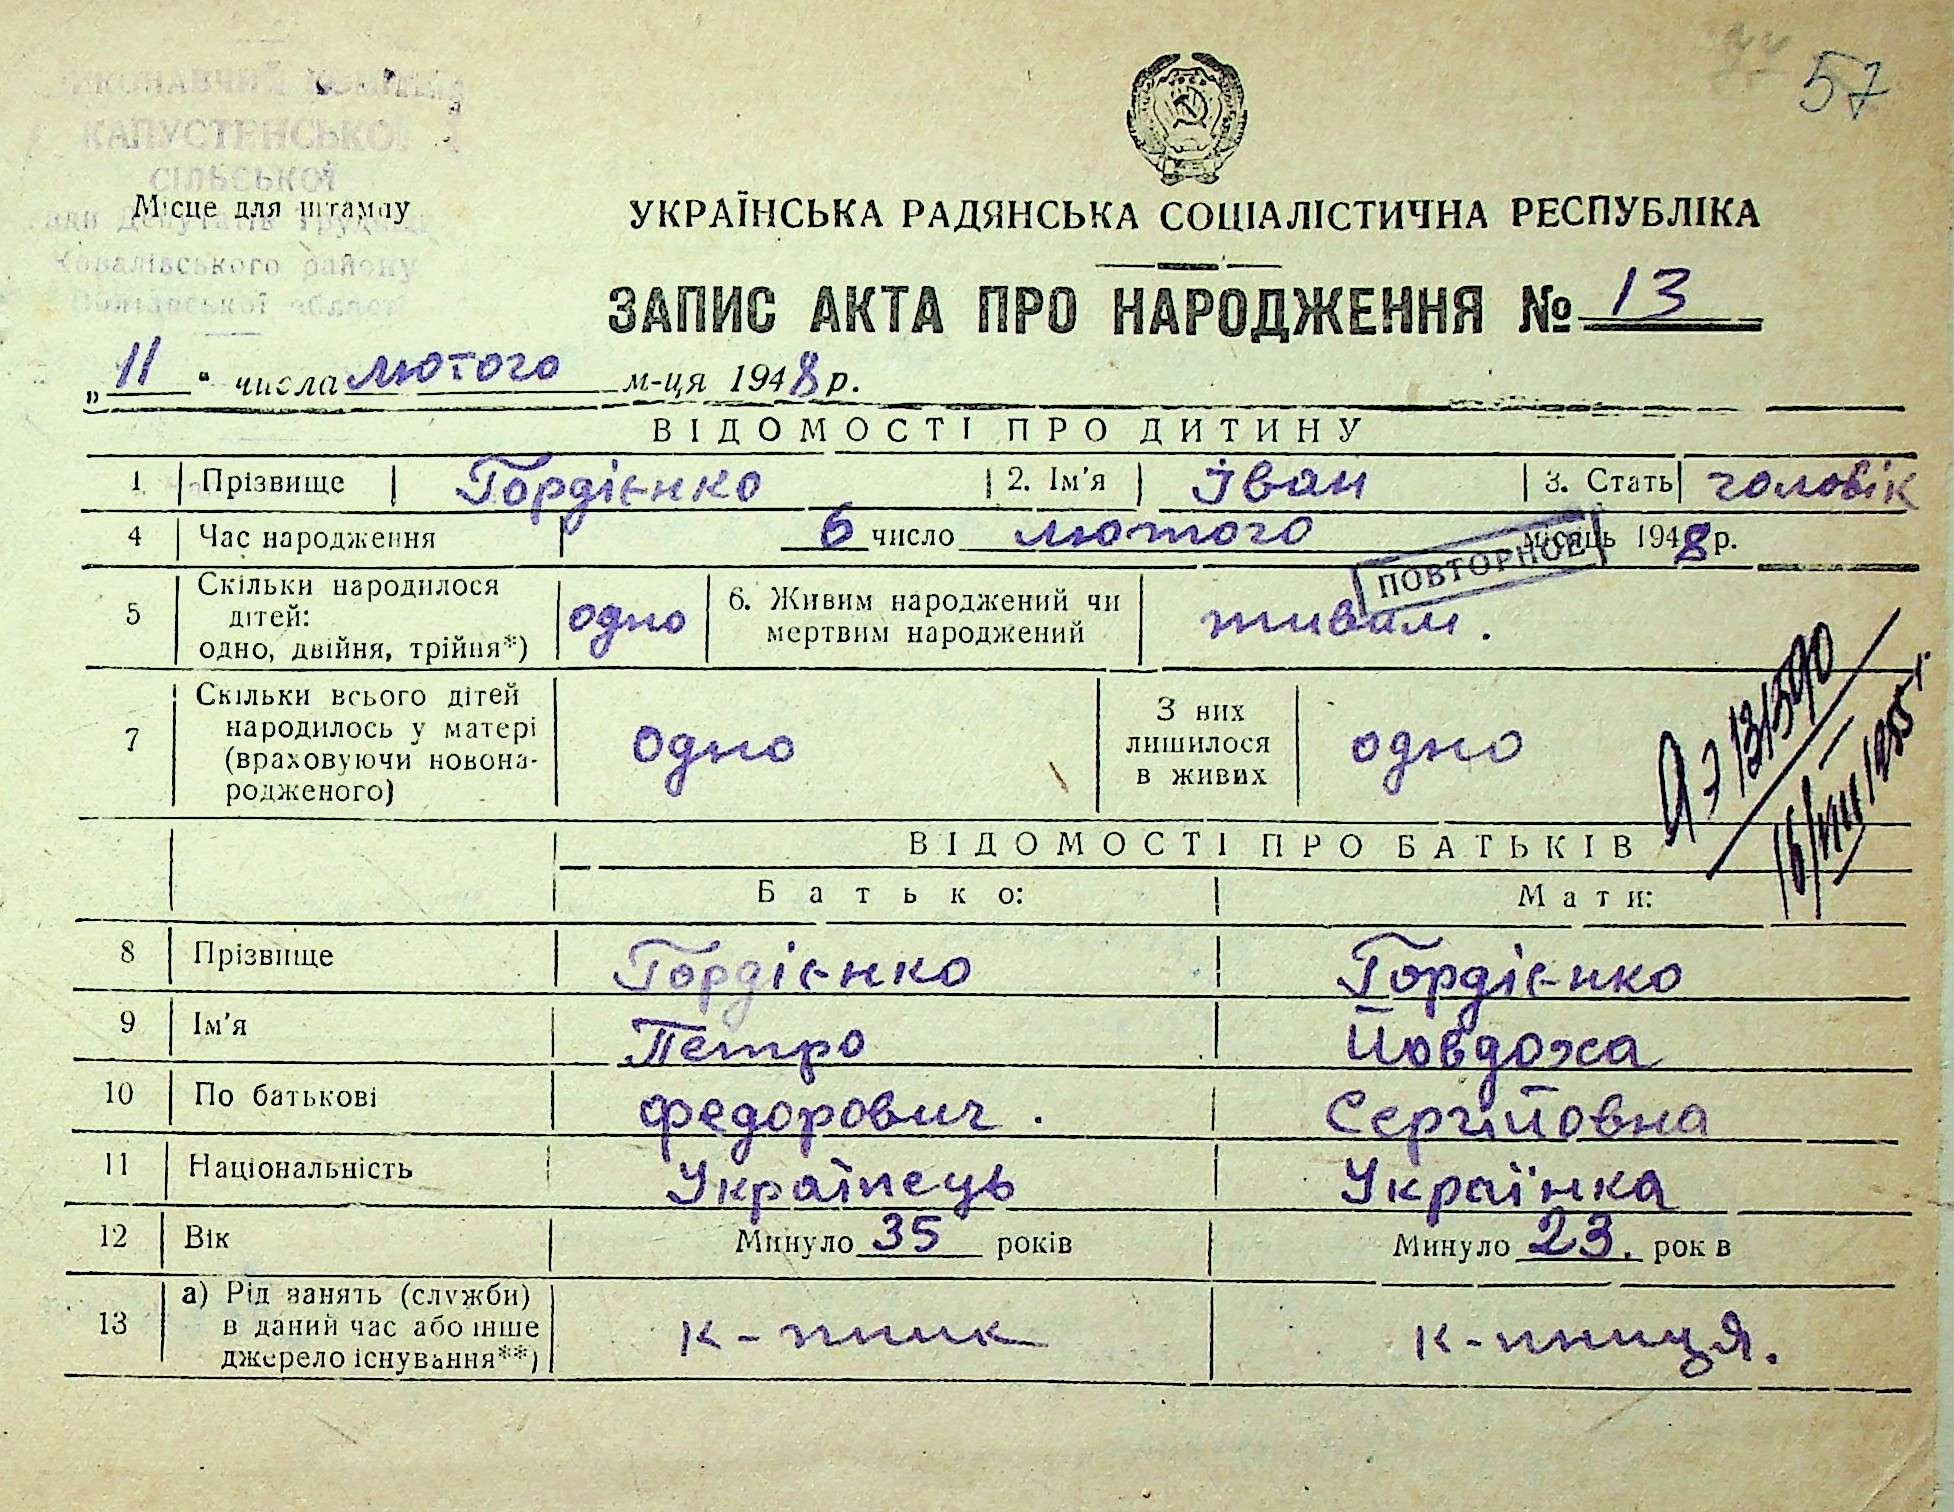 57
ВИКОНАВЧИЙ КОМІТЕТ
КАПУСТЕНСЬКОЇ
СІЛЬСЬКОЇ
Ради Депутатів Трудящ.
Ковалівського району
Полтавської області
Місце для штампу
УКРАЇНСЬКА РАДЯНСЬКА СОЦІАЛІСТИЧНА РЕСПУБЛІКА
ЗАПИС АКТА ПРО НАРОДЖЕННЯ № 13
„11“ числа лютого м-ця 1948 р.
ВІДОМОСТІ ПРО ДИТИНУ
1 Прізвище Гордієнко 2. Ім'я Іван 3. Стать чоловік
4 Час народження 6 число лютого місяць 1948 р.
ПОВТОРНОЕ
5 Скільки народилося
дітей:
одно, двійня, трійня*) одно 6. Живим народжений чи
мертвим народжений живим.
7 Скільки всього дітей
народилось у матері
(враховуючи новона-
родженого) одно З них
лишилося
в живих одно
16/VIII 1955 г.
ВІДОМОСТІ ПРО БАТЬКІВ
Батько: Мати:
8 Прізвище Гордієнко Гордієнко
9 Ім'я Петро Йовдоха
10 По батькові Федорович. Сергійовна
11 Національність Українець Українка
12 Вік Минуло 35 років Минуло 23. рок в
13 а) Рід занять (служби)
в даний час або інше
джерело існування**) к-пник к-пниця.